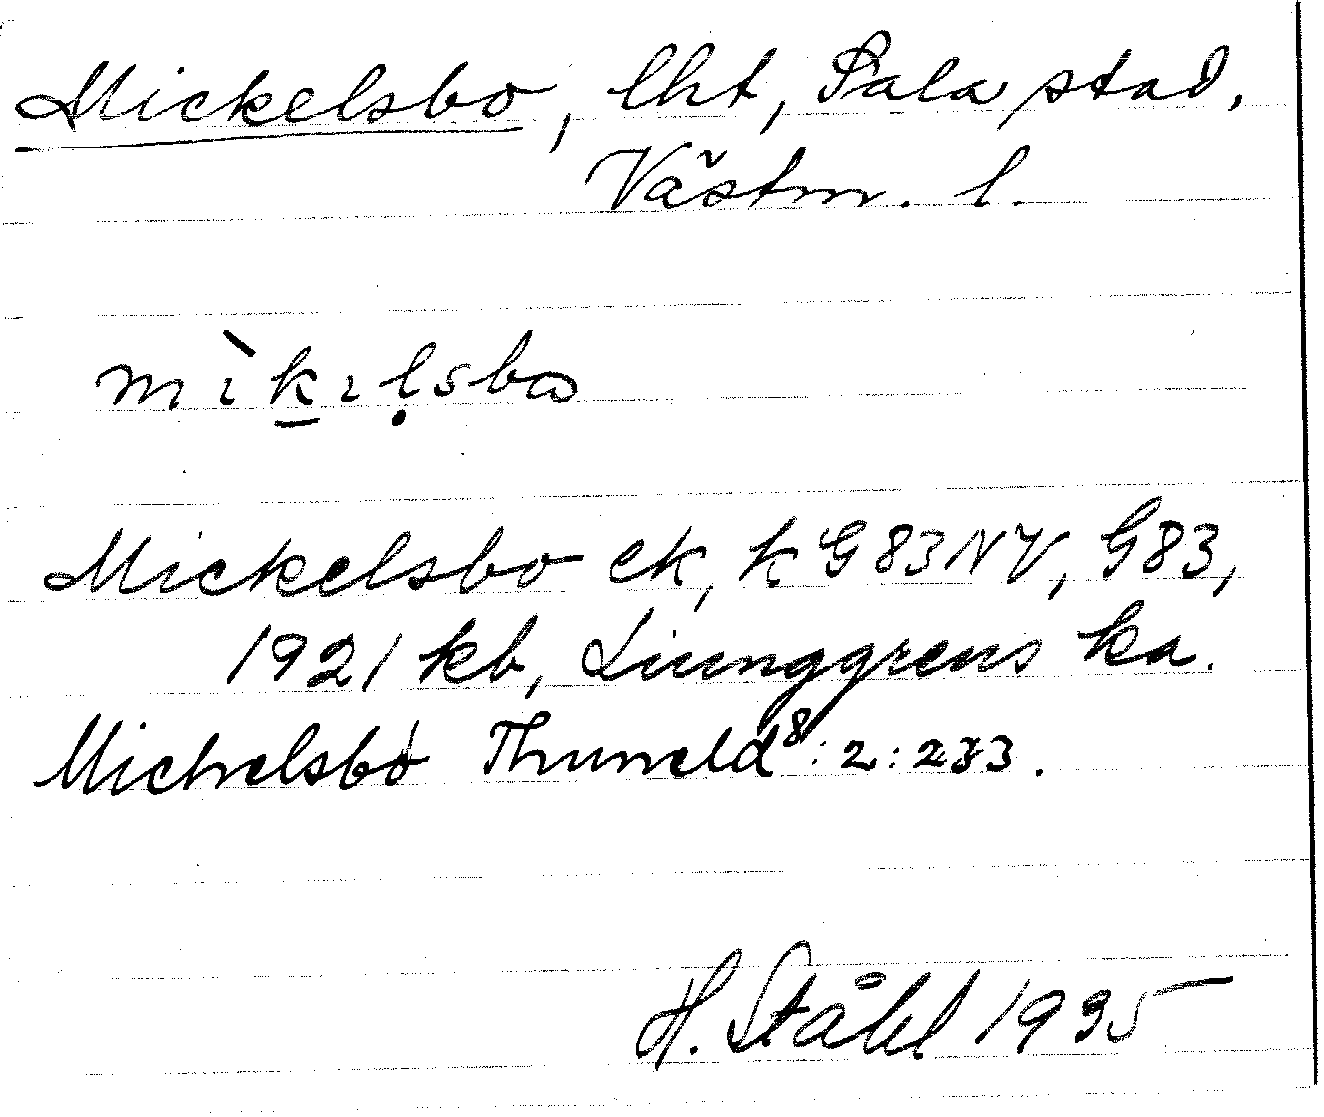 Mickelsbo, lht, Sala stad,
Västm. l.
mìkılsbω
Mickelsbo ek, k G83NV, G83,
1921 kb, Ljunggrens ka.
Michelsbo Thuneld⁸:2:233.
H. Ståhl 1935